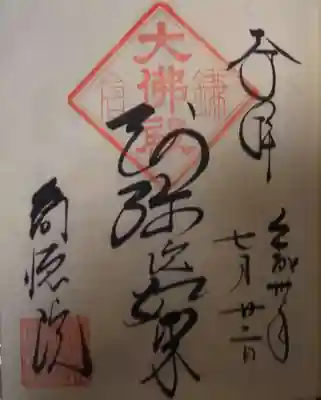 奉拝
平成卅年
七月廿二日
大佛殿
鎌倉
阿弥陀如来
高徳院